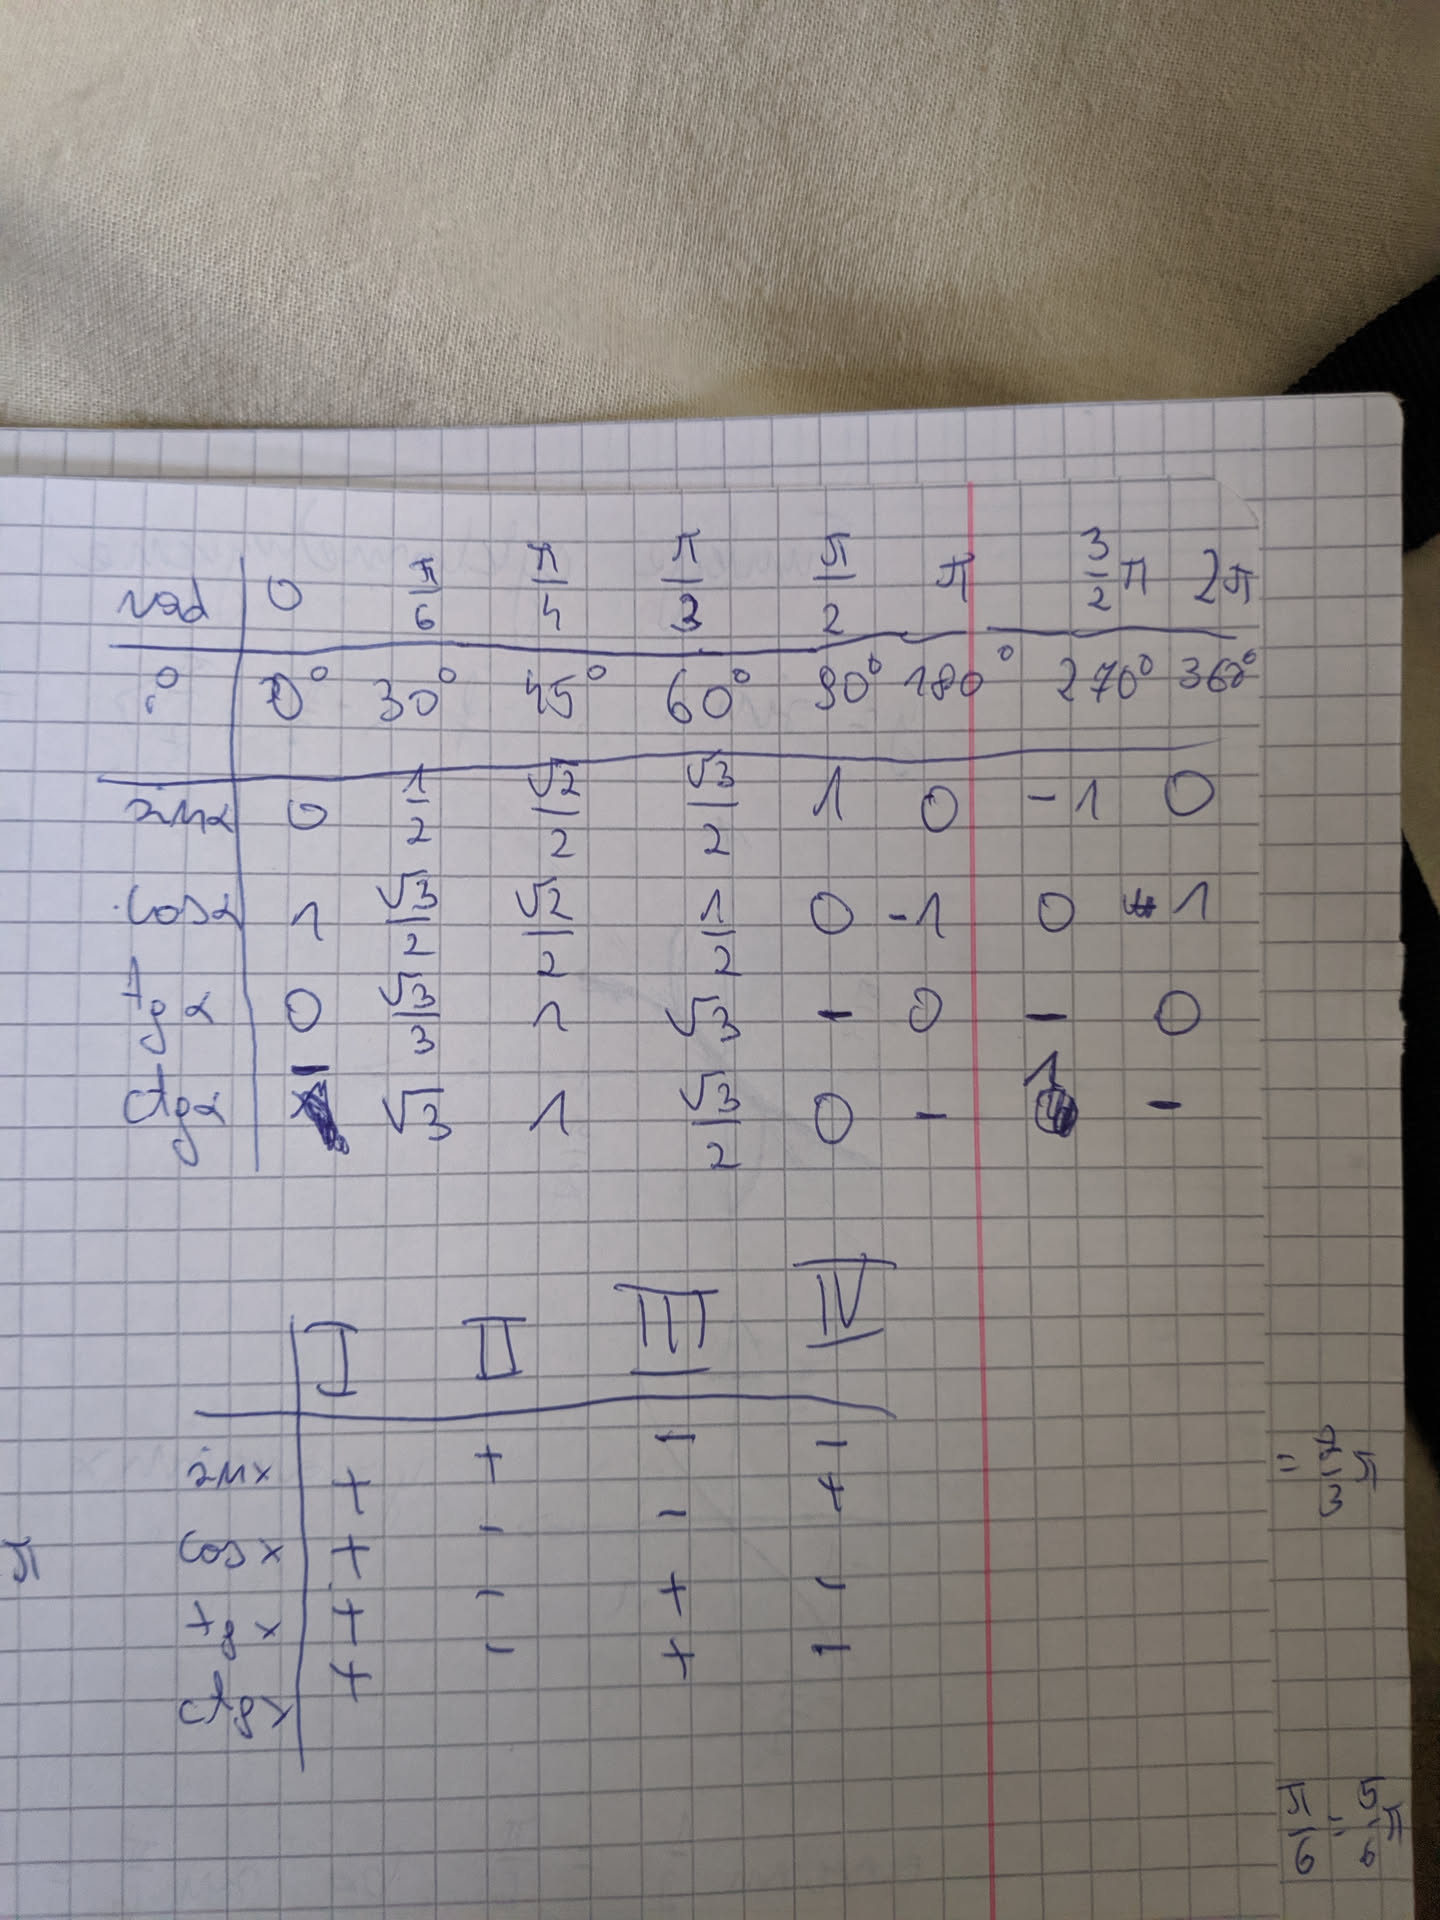 rad 0 π/6 π/4 π/3 π/2 π 3/2 π 2π
° 0° 30° 45° 60° 90° 180° 270° 360°
sin α 0 1/2 √2/2 √3/2 1 0 -1 0
cos α 1 √3/2 √2/2 1/2 0 -1 0 1
tg α 0 √3/3 1 √3 - 0 - 0
ctg α - √3 1 √3/2 0 - 1 -
I II III IV
sin x + + - -
cos x + - - +
tg x + - + -
ctg x + - + -
π
= 2/3 π
π/6 = 5/6 π